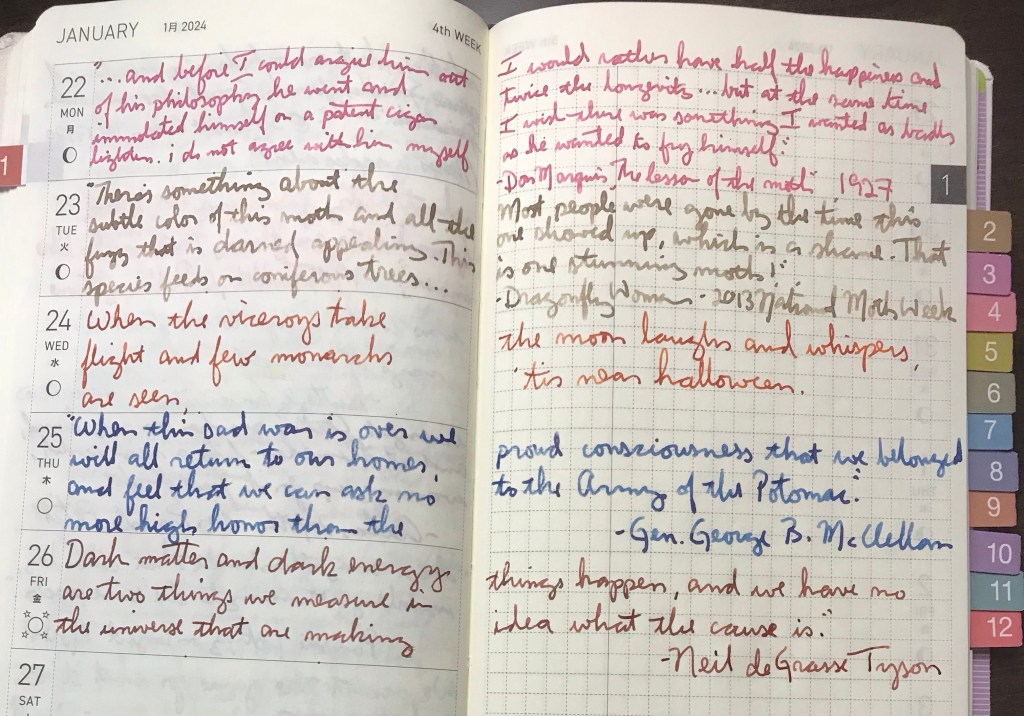 JANUARY 1月 2024 4th WEEK
22
MON
月
"...and before I could argue him out
of his philosophy he went and
immolated himself on a patent cigar
lighter. i do not agree with him myself
I would rather have half the happiness and
twice the longevity... but at the same time
I wish there was something I wanted as badly
as he wanted to fry himself."
-Don Marquis, "The lesson of the moth" 1927
23
TUE
火
"There's something about the
subtle color of this moth and all the
fuzz that is darned appealing. This
species feeds on coniferous trees...
Most people were gone by the time this
one showed up, which is a shame. That
is one stunning moth!"
-Dragonfly Woman - 2013 National Moth Week
24
WED
水
When the viceroys take
flight and few monarchs
are seen,
the moon laughs and whispers,
'tis near halloween.
25
THU
木
"When this sad war is over we
will all return to our homes
and feel that we can ask no
more high honor than the
proud consciousness that we belonged
to the Army of the Potomac."
-Gen. George B. McClellan
26
FRI
金
Dark matter and dark energy
are two things we measure in
the universe that are making
things happen, and we have no
idea what the cause is."
-Neil deGrasse Tyson
27
SAT
1
1
2
3
4
5
6
7
8
9
10
11
12